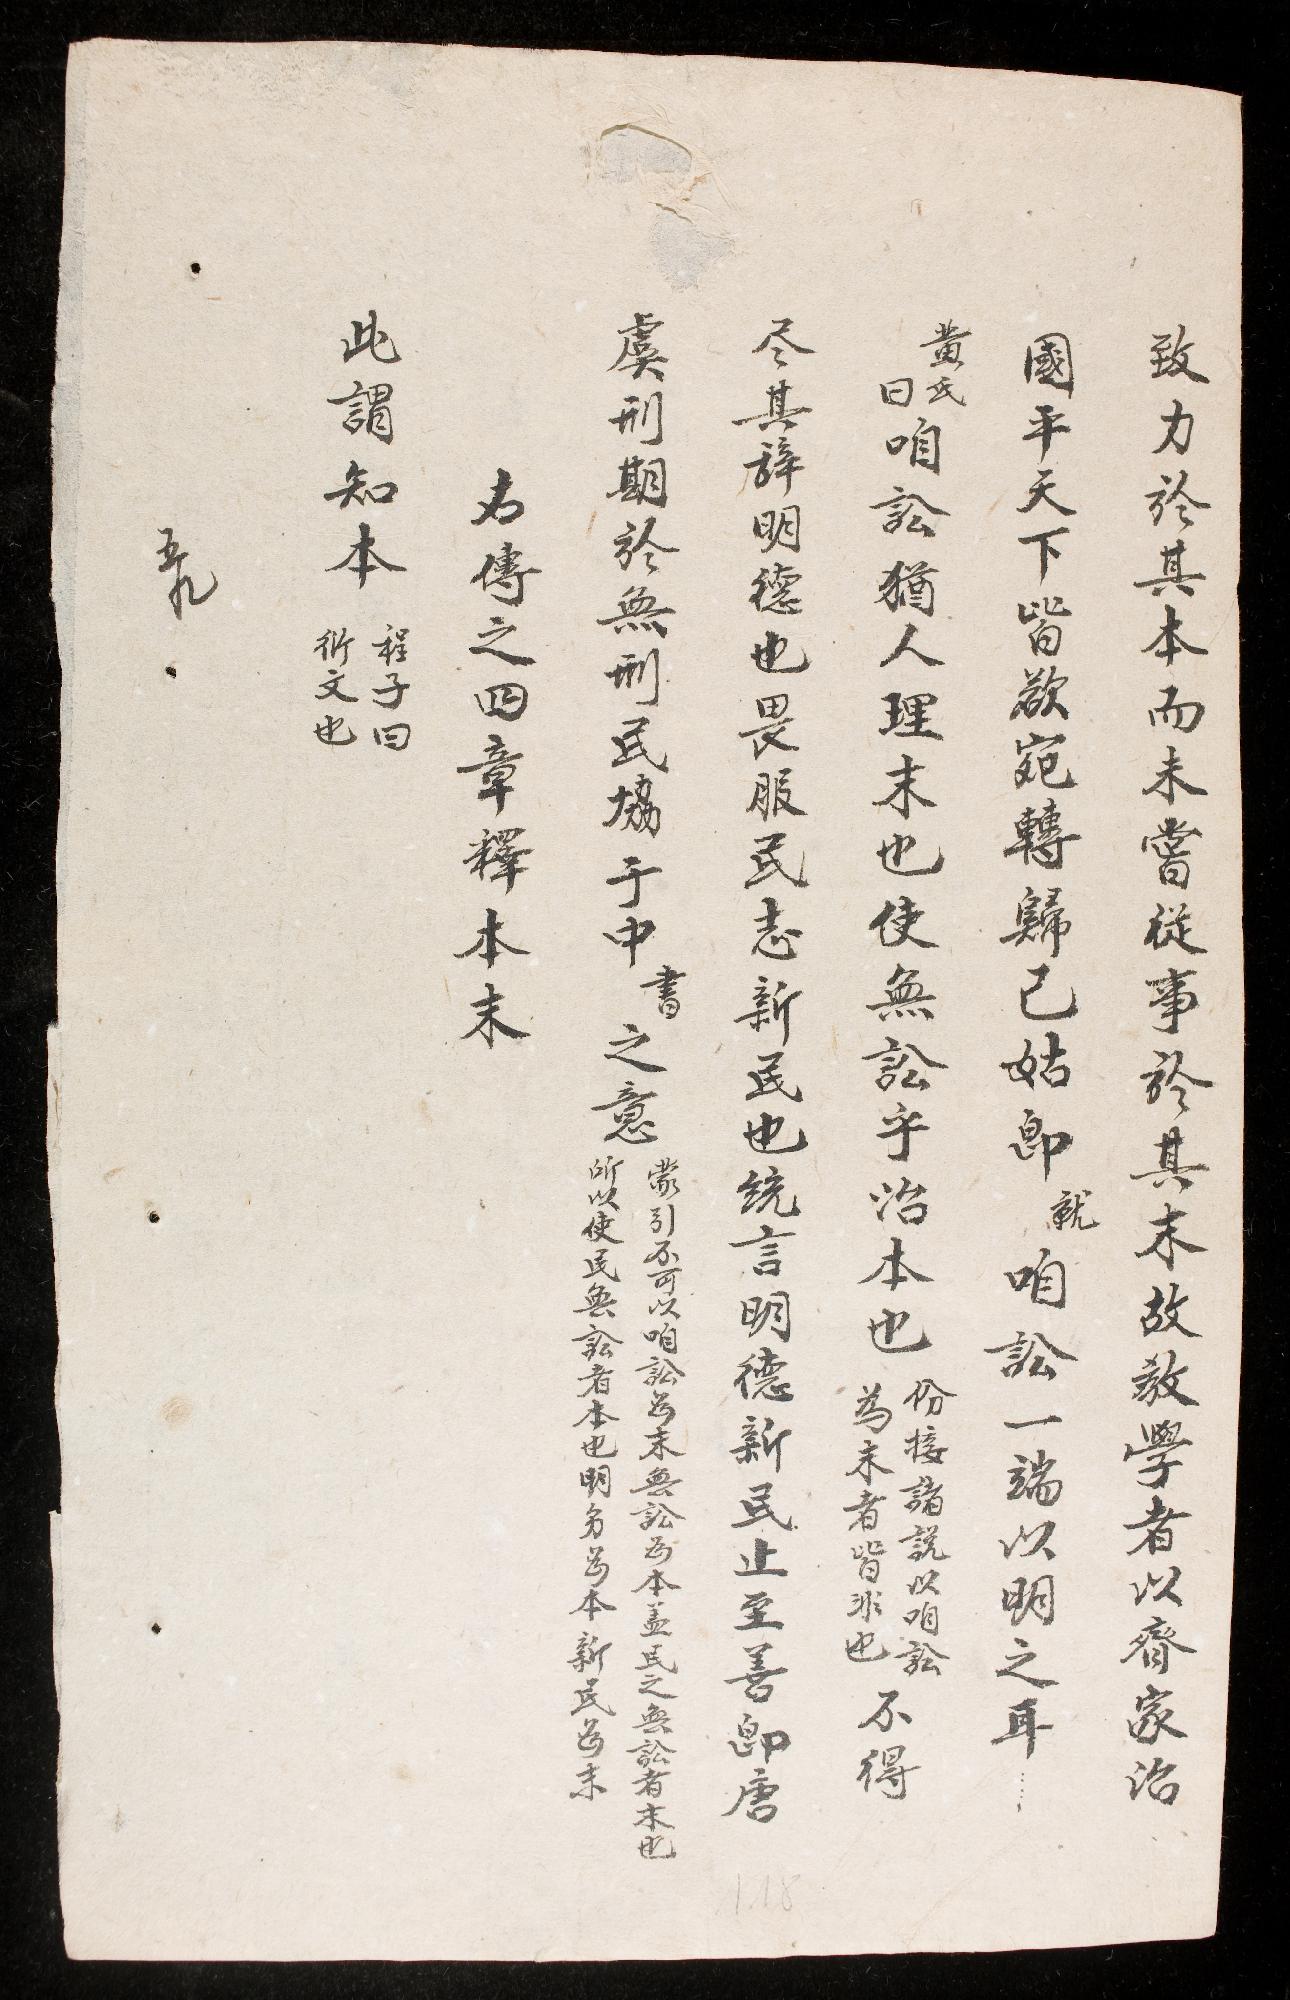 致力於其本而未嘗從事於其末故教學者以齊家治
國平天下皆欲宛轉歸己姑即就咱訟一端以明之耳
黃氏曰咱訟猶人理末也使無訟乎治本也份接諸說以咱訟為末者皆非也不得
尽其辞明德也畏服民志新民也統言明德新民止至善即唐
虞刑期於無刑民恊于中書之意蒙引不可以咱訟为末無訟为本盖民之無訟者末也所以使民無訟者本也明为本新民为末
右傳之四章釋本末
此謂知本程子曰衍文也
五九
118